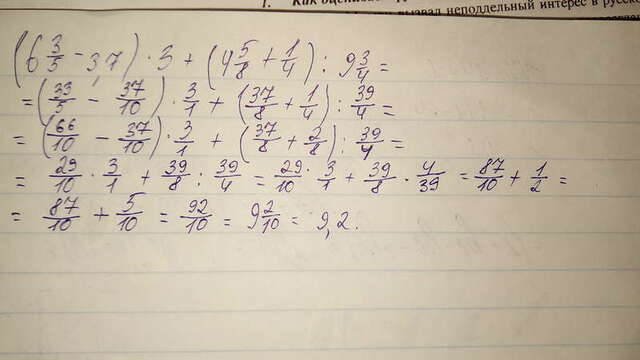 1. Как оцени
вызвал неподдельный интерес в русско
(6 3/5 - 3,7) · 3 + (4 5/8 + 1/4) : 9 3/4 =
= (33/5 - 37/10) · 3/1 + (37/8 + 1/4) : 39/4 =
= (66/10 - 37/10) · 3/1 + (37/8 + 2/8) : 39/4 =
= 29/10 · 3/1 + 39/8 : 39/4 = 29/10 · 3/1 + 39/8 · 4/39 = 87/10 + 1/2 =
= 87/10 + 5/10 = 92/10 = 9 2/10 = 9,2.